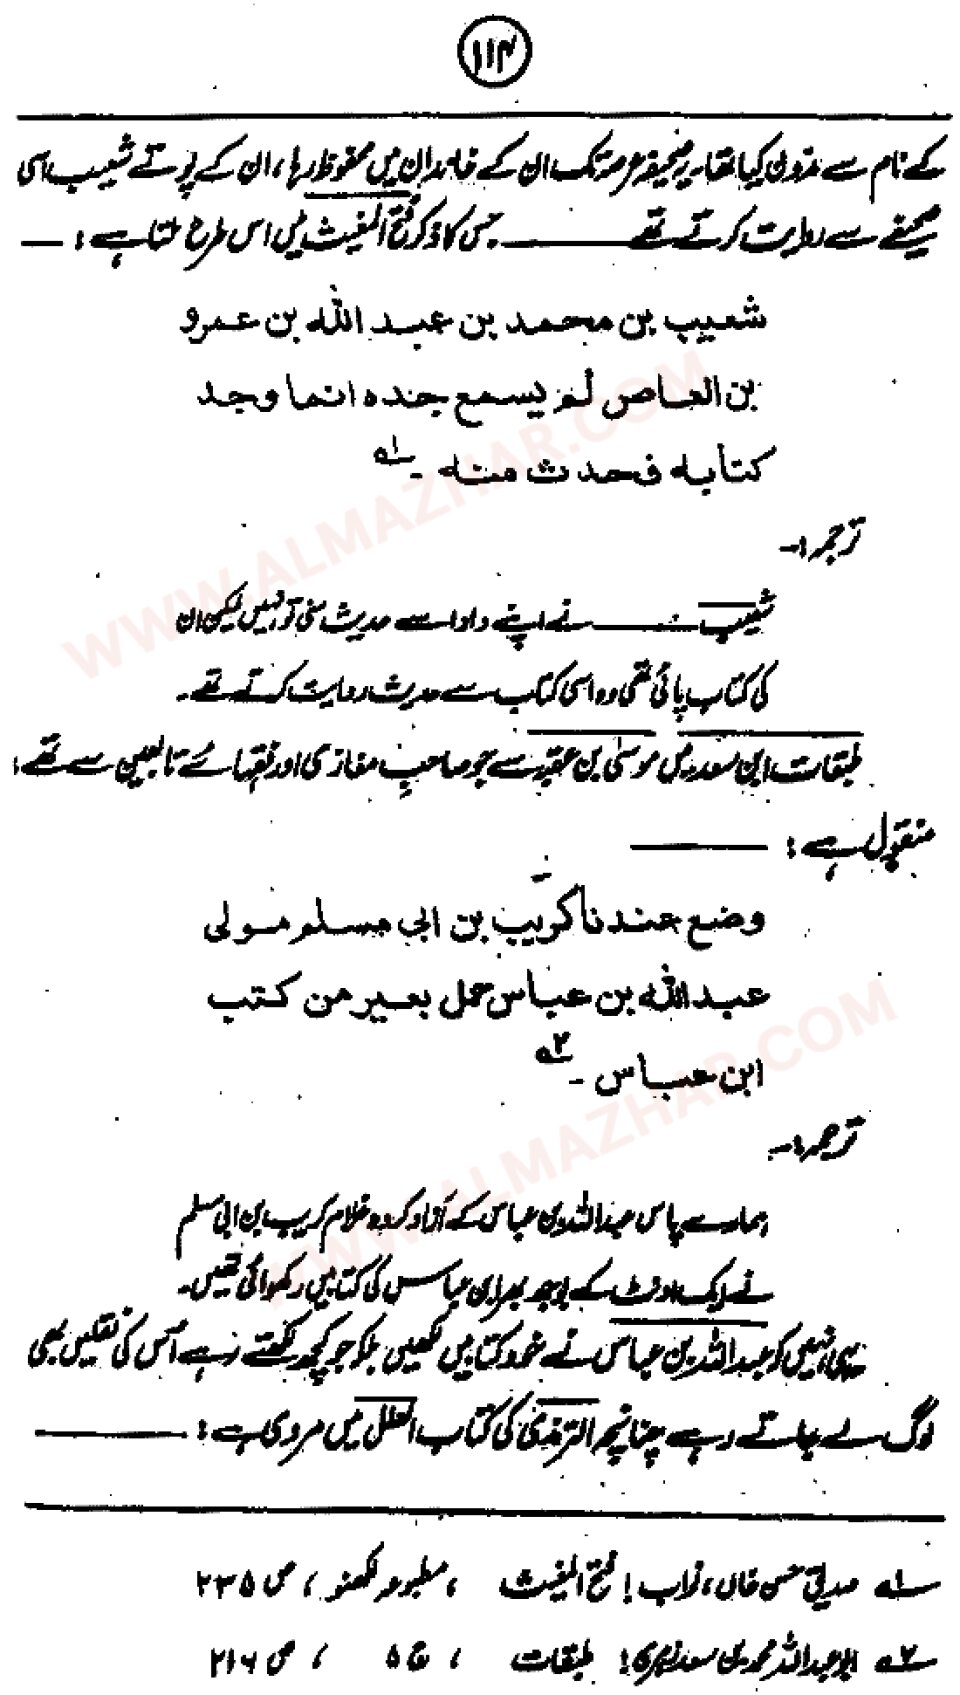 ۱۱۴
کے نام سے مدون کیا تھا۔ یہ صحیفہ عرصہ تک ان کے خاندان میں محفوظ رہا، ان کے پوتے شعیب اسی
صحیفے سے روایت کرتے تھے ــــــ جس کا ذکر فتح المغیث میں اس طرح ملتا ہے: ــ
شعیب بن محمد بن عبد اللہ بن عمرو
بن العاص لم یسمع جدہ انما وجد
کتابہ فحدث منہ ۔ ؎۱
ترجمہ:۔
شعیب ــــــ نے اپنے دادا سے حدیث سنی تو نہیں لیکن ان
کی کتاب پائی تھی وہ اسی کتاب سے حدیث روایت کرتے تھے۔
طبقات ابن سعد میں موسیٰ بن عقبہ سے جو صاحبِ مغازی اور فقہائے تابعین سے تھے،
منقول ہے: ــــــ
وضع عندنا کریب بن ابی مسلم مولی
عبد اللہ بن عباس حمل بعیر من کتب
ابن عباس ۔ ؎۲
ترجمہ:۔
ہمارے پاس عبداللہ بن عباس کے آزاد کردہ غلام کریب بن ابی مسلم
نے ایک اونٹ کے بوجھ بھر ابن عباس کی کتابیں رکھوائی تھیں۔
یہی نہیں کہ عبداللہ بن عباس نے خود کتابیں لکھیں بلکہ جو کچھ لکھتے رہے اُس کی نقلیں بھی
لوگ لے جاتے رہے چنانچہ الترمذی کی کتاب العلل میں مروی ہے: ــــــ
؎۱ صدیق حسن خاں، نواب: فتح المغیث ، مطبوعہ لکھنو ، ص ۲۳۵
؎۲ ابو عبداللہ محمد بن سعد زہری: طبقات ، ج ۵ ، ص ۲۱۶
WWW.ALMAZHAR.COM
WWW.ALMAZHAR.COM